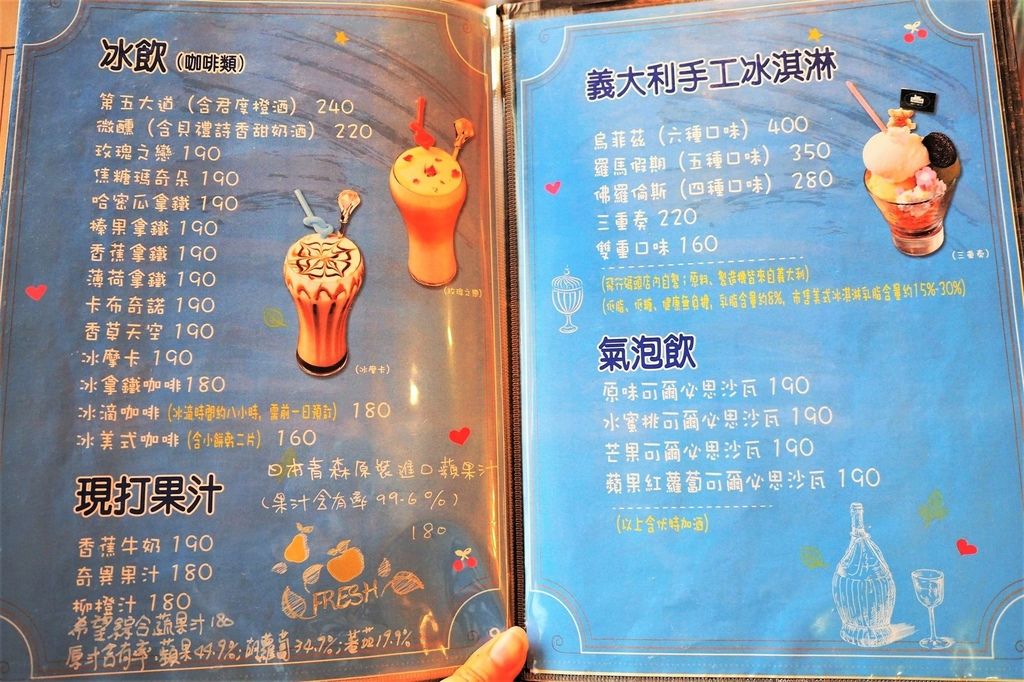 冰飲（咖啡類）
第五大道（含君度橙酒） 240
微醺（含貝禮詩香甜奶酒） 220
玫瑰之戀 190
焦糖瑪奇朵 190
哈密瓜拿鐵 190
榛果拿鐵 190
香蕉拿鐵 190
薄荷拿鐵 190
卡布奇諾 190
香草天空 190
冰摩卡 190
冰拿鐵咖啡 180
冰滴咖啡（冰滴時間約八小時，需前一日預訂） 180
冰美式咖啡（含小餅乾二片） 160
（玫瑰之戀）
（冰摩卡）
現打果汁
日本青森原裝進口蘋果汁
（果汁含有率 99.6%）
180
香蕉牛奶 190
奇異果汁 180
柳橙汁 180
希望綜合蔬果汁 180
原汁含有率，蘋果44.9%；胡蘿蔔34.9%；蕃茄19.9%
FRESH
義大利手工冰淇淋
烏菲茲（六種口味） 400
羅馬假期（五種口味） 350
佛羅倫斯（四種口味） 280
三重奏 220
雙重口味 160
（三重奏）
（飛行碼頭店內自製；原料、製造機皆來自義大利）
（低脂、低糖、健康無負擔，乳脂含量約6%，市售美式冰淇淋乳脂含量約15%-30%）
氣泡飲
原味可爾必思沙瓦 190
水蜜桃可爾必思沙瓦 190
芒果可爾必思沙瓦 190
蘋果紅蘿蔔可爾必思沙瓦 190
（以上含伏特加酒）